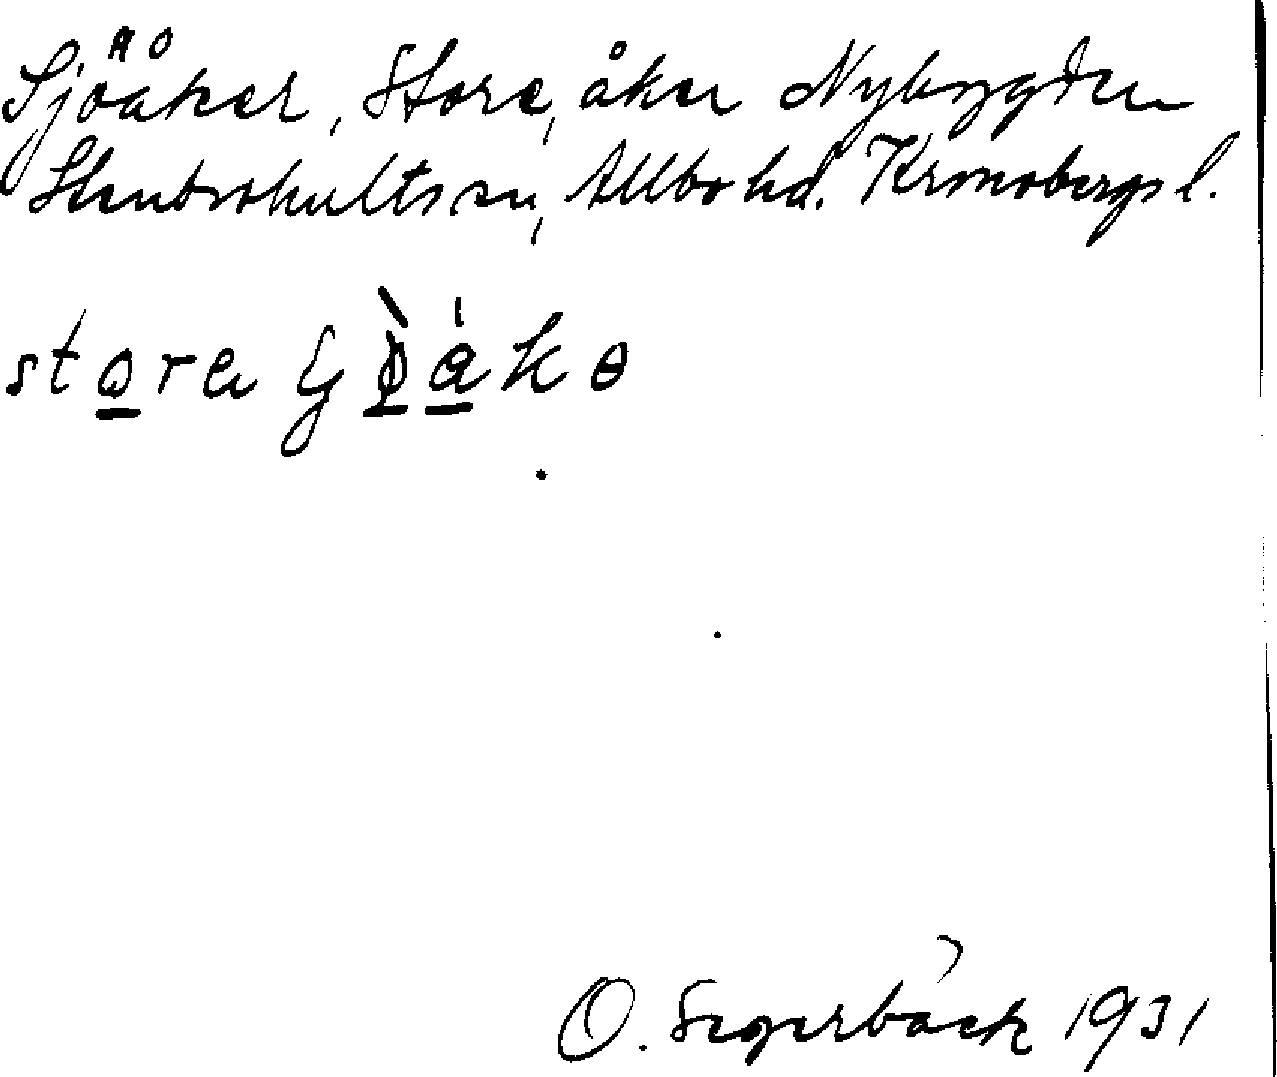 Sjöåker, Store, åker Nybygden
Stenbrohults sn, Allbo hd. Kronobergs l.
O. Segerbäck 1931